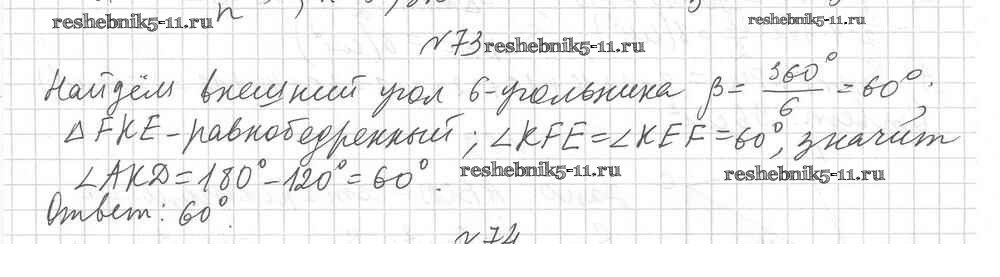 reshebnik5-11.ru
reshebnik5-11.ru
№73 reshebnik5-11.ru
Найдём внешний угол 6-угольника β = 360°/6 = 60°;
△FKE – равнобедренный; ∠KFE = ∠KEF = 60°, значит
∠AKD = 180° – 120° = 60°.
reshebnik5-11.ru
reshebnik5-11.ru
Ответ: 60°.
№74